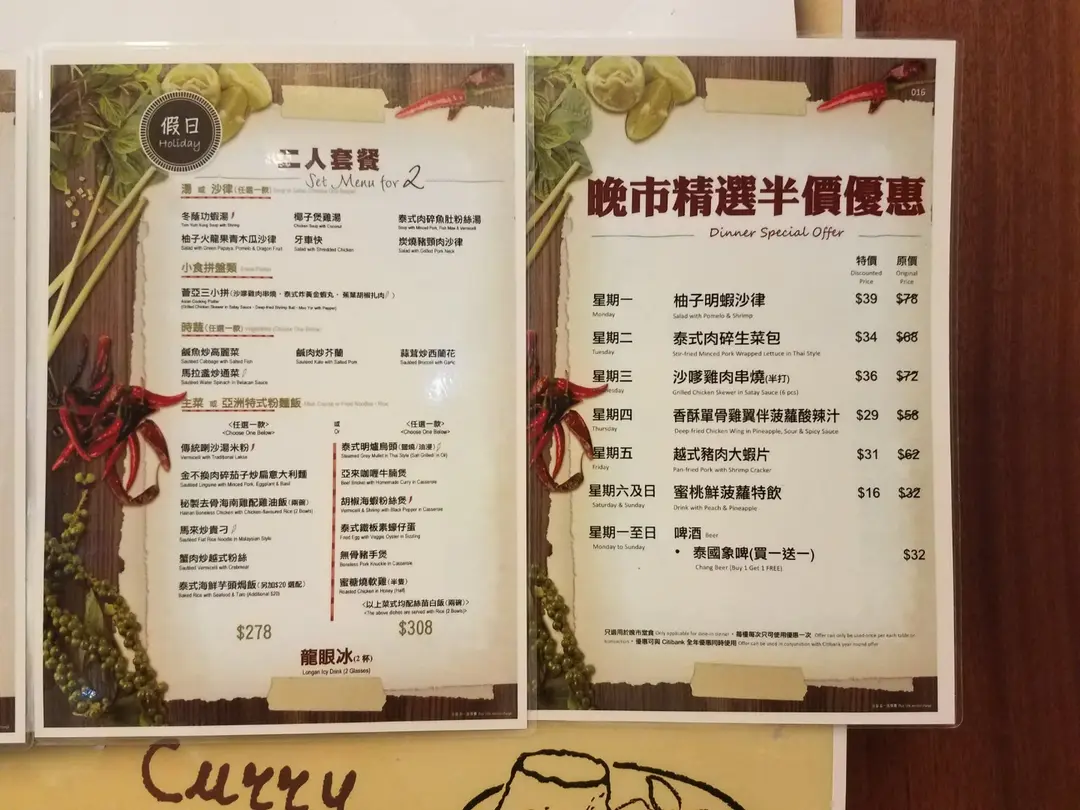 假日
Holiday
二人套餐
Set Menu for 2
湯 或 沙律(任選一款)
冬蔭功蝦湯 椰子煲雞湯 泰式肉碎魚肚粉絲湯
Tom Yum Kung Soup with Shrimp Chicken Soup with Coconut Soup with Minced Pork, Fish Maw & Vermicelli
柚子火龍果青木瓜沙律 牙車快 炭燒豬頸肉沙律
Salad with Green Papaya, Pomelo & Dragon Fruit Salad with Shredded Chicken Salad with Grilled Pork Neck
小食拼盤類
薈亞三小拼(沙嗲雞肉串燒、泰式炸黃金蝦丸、蕉葉胡椒扎肉)
時蔬(任選一款)
鹹魚炒高麗菜 鹹肉炒芥蘭 蒜茸炒西蘭花
Sauteed Cabbage with Salted Fish Sauteed Kale with Salted Pork Sauteed Broccoli with Garlic
馬拉盞炒通菜
Sauteed Water Spinach in Belacan Sauce
主菜 或 亞洲特式粉麵飯
<任選一款> 或 <任選一款>
<Choose One Below> Or <Choose One Below>
傳統喇沙湯米粉 泰式明爐烏頭(鹽燒/油浸)
Vermicelli with Traditional Laksa Steamed Grey Mullet in Thai Style (Salt Grilled/ in Oil)
金不換肉碎茄子炒扁意大利麵 亞來咖喱牛腩煲
Sauteed Linguine with Minced Pork, Eggplant & Basil Beef Brisket with Homemade Curry in Casserole
秘製去骨海南雞配雞油飯(兩碗) 胡椒海蝦粉絲煲
Hainan Boneless Chicken with Chicken-flavoured Rice (2 Bowls) Vermicelli & Shrimp with Black Pepper in Casserole
馬來炒貴刁 泰式鐵板素蠔仔蛋
Sauteed Flat Rice Noodle in Malaysian Style Fried Egg with Veggie Oyster in Sizzling
蟹肉炒越式粉絲 無骨豬手煲
Sauteed Vermicelli with Crabmeat Boneless Pork Knuckle in Casserole
泰式海鮮芋頭焗飯(另加$20 選配) 蜜糖燒軟雞(半隻)
Baked Rice with Seafood & Taro (Additional $20) Roasted Chicken in Honey (Half)
<以上菜式均配絲苗白飯(兩碗)>
<The above dishes are served with Rice (2 Bowls)>
$278 $308
龍眼冰(2 杯)
Longan Icy Drink (2 Glasses)
016
晚市精選半價優惠
Dinner Special Offer
特價 原價
Discounted Price Original Price
星期一 柚子明蝦沙律 $39 $78
Monday Salad with Pomelo & Shrimp
星期二 泰式肉碎生菜包 $34 $68
Tuesday Stir-fried Minced Pork Wrapped Lettuce in Thai Style
星期三 沙嗲雞肉串燒(半打) $36 $72
Grilled Chicken Skewer in Satay Sauce (6 pcs)
星期四 香酥單骨雞翼伴菠蘿酸辣汁 $29 $58
Thursday Deep-fried Chicken Wing in Pineapple, Sour & Spicy Sauce
星期五 越式豬肉大蝦片 $31 $62
Friday Pan-fried Pork with Shrimp Cracker
星期六及日 蜜桃鮮菠蘿特飲 $16 $32
Saturday & Sunday Drink with Peach & Pineapple
星期一至日 啤酒 Beer
Monday to Sunday
• 泰國象啤(買一送一) $32
Chang Beer (Buy 1 Get 1 FREE)
只適用於晚市堂食 Only applicable for dine-in dinner • 每檯每次只可使用優惠一次 Offer can only be used once per each table or
transaction • 優惠可與 Citibank 全年優惠同時使用 Offer can be used in conjunction with Citibank year round offer
Curry